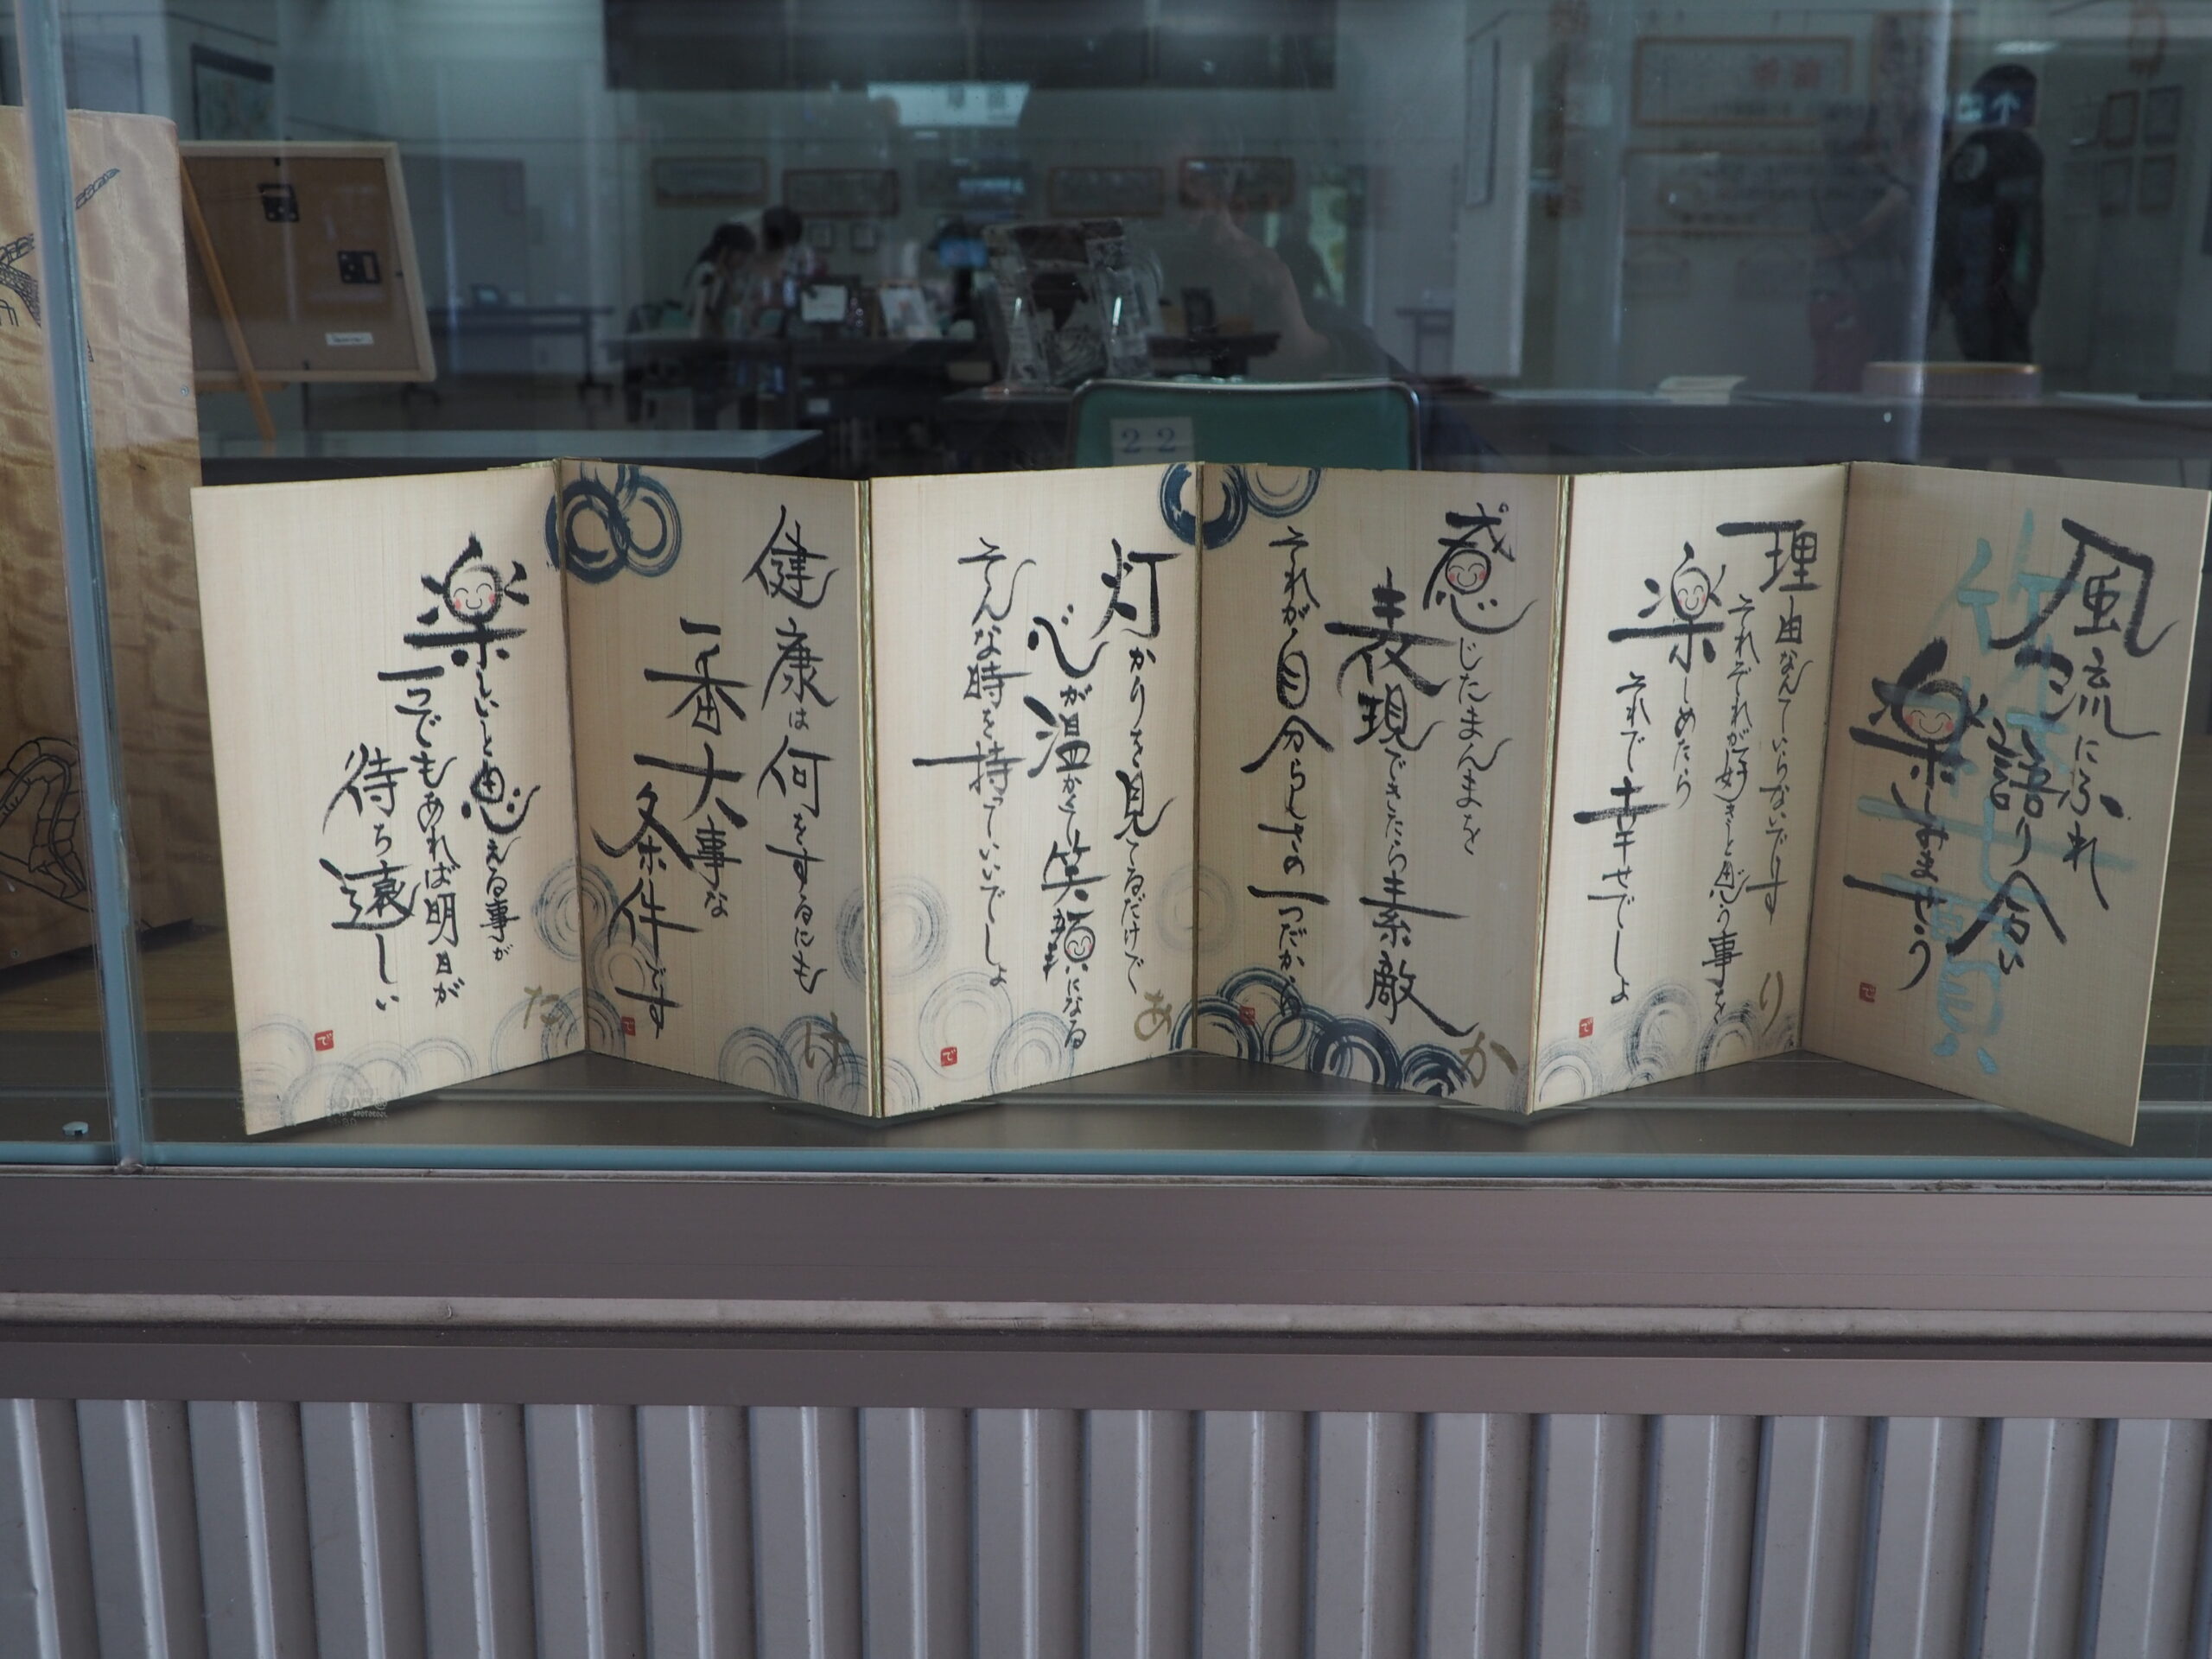 風流にふれ
語り合い
楽しみませう
理由なんていらないでしょ
それぞれが好きと思う事を
楽しめたら
それで幸せでしょ
り
感じたまんまを
表現できたら素敵
それが自分らしさの一つだから
か
灯かりを見てるだけで
心が温かく笑顔になる
そんな時を持っていいでしょ
あ
健康は何をするにも
一番大事な
条件です
け
楽しいと思える事が
一つでもあれば明日が
待ち遠しい
た
で
22